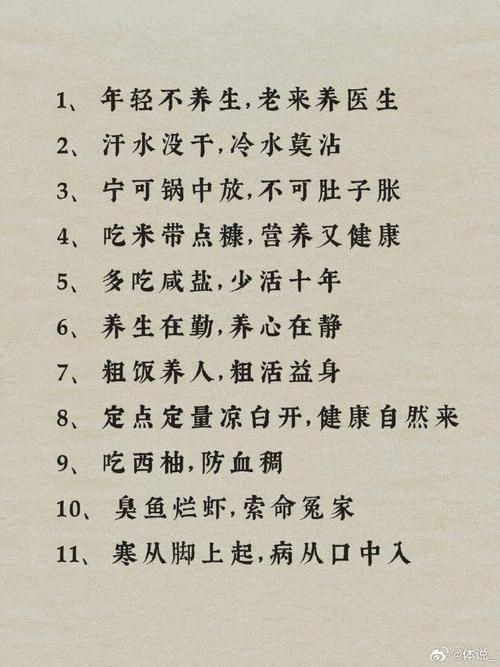 1、 年轻不养生,老来养医生
2、 汗水没干,冷水莫沾
3、 宁可锅中放,不可肚子胀
4、 吃米带点糠,营养又健康
5、 多吃咸盐,少活十年
6、 养生在勤,养心在静
7、 粗饭养人,粗活益身
8、 定点定量凉白开,健康自然来
9、 吃西柚,防血稠
10、 臭鱼烂虾,索命冤家
11、 寒从脚上起,病从口中入
@体说_